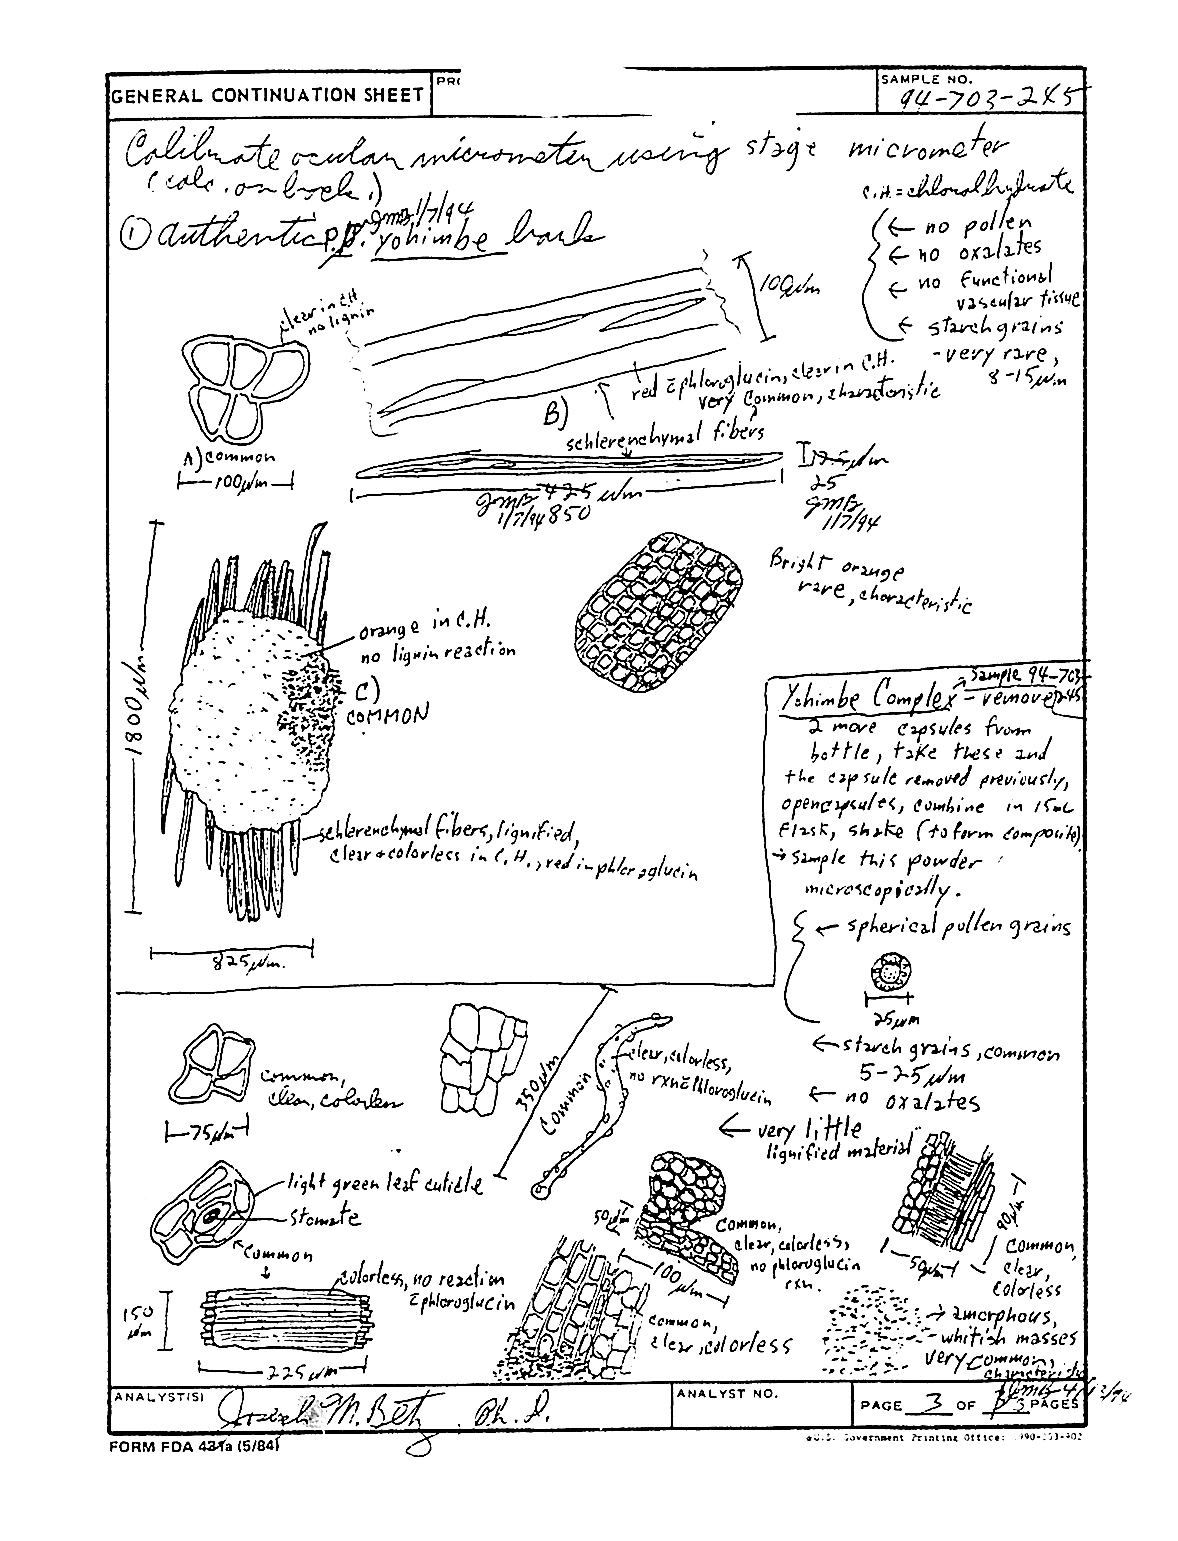 GENERAL CONTINUATION SHEET
SAMPLE NO.
94-703-245
Calibrate ocular micrometer using stage micrometer
(calc. on back.)
C.H. = chloralhydrate
JMB 1/7/94
① authentic P.Y. Yohimbe bark
← no pollen
← no oxalates
← no functional
vascular tissue
← starch grains
- very rare,
8-15µm
clear in C.H.
no lignin
A) common
100µm
100µm
red c̄ phloroglucin, clear in C.H.
very common, characteristic
B)
schlerenchymal fibers
12.5µm
25
JMB
1/7/94
JMB 425 µm
1/7/94 850
Bright orange
rare, characteristic
orange in C.H.
no lignin reaction
C)
COMMON
1800µm
schlerenchymal fibers, lignified,
clear + colorless in C.H., red in phloroglucin
825µm.
Sample 94-703-245
Yohimbe Complex - remove
2 more capsules from
bottle, take these and
the capsule removed previously,
open capsules, combine in 15mL
flask, shake (to form composite).
→ sample this powder
microscopically.
← spherical pollen grains
25µm
← starch grains, common
5-25µm
← no oxalates
← very little
lignified material
common,
clear, colorless
75µm
350µm
common
clear, colorless,
no rxn c̄ phloroglucin
light green leaf cuticle
stomate
common
colorless, no reaction
c̄ phloroglucin
150
µm
225µm
50µm
100µm
common,
clear, colorless,
no phloroglucin
rxn.
common,
clear, colorless
90µm
50µm
common,
clear,
colorless
→ amorphous,
whitish masses
very common,
characteristic
ANALYST(S)
Joseph M. Betz, Ph.D.
ANALYST NO.
PAGE 3 OF 3 PAGES
FORM FDA 431a (5/84)
U.S. Government Printing Office: